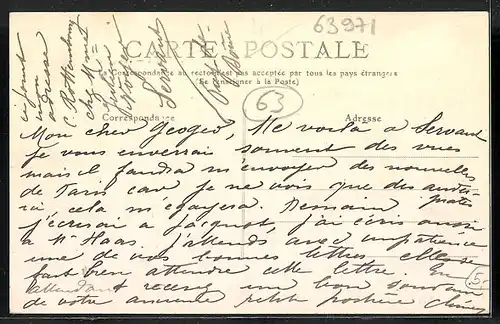 63971
CARTE POSTALE
La Correspondance au recto n'est pas acceptée par tous les pays étrangers
(Se renseigner à la Poste)
63
Correspondance
Adresse
ci joint
mon
adresse
C. Rottembourg
chez Mme
Servant
Puy-de-
Dôme
Mon cher Georges, Me voila a Servant
je vous enverrai souvent des vues
mais il faudra m'envoyer des nouvelles
de Paris car je ne vois que des
cela m'égayera. Demain
j'écrirai a Jacquot, j'ai écris aussi
a Mr Haas. J'attends avec impatience
une de vos bonnes lettres
faut bien attendre cette lettre. En
attendant recevez un bon souvenir
de votre amie
5